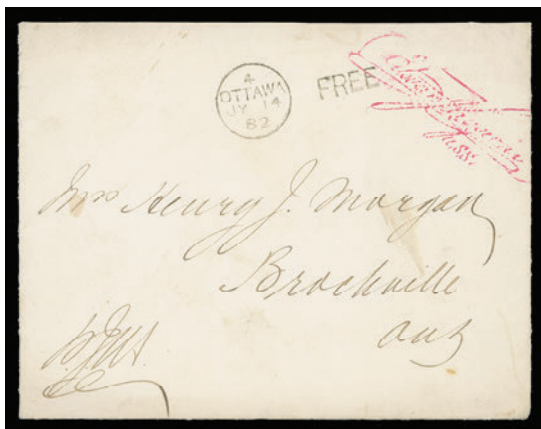 4
OTTAWA
JY 14
82
FREE
Mrs Henry J. Morgan
Brockville
Ont